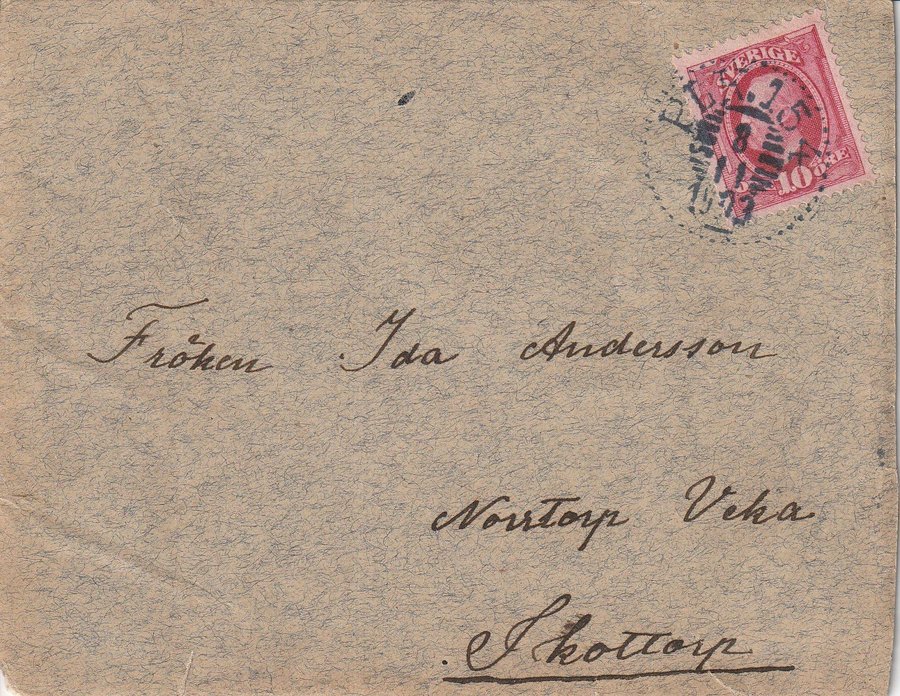 SVERIGE
10 ÖRE
8
11
Fröken Ida Andersson
Norrtorp Veka
Skottorp